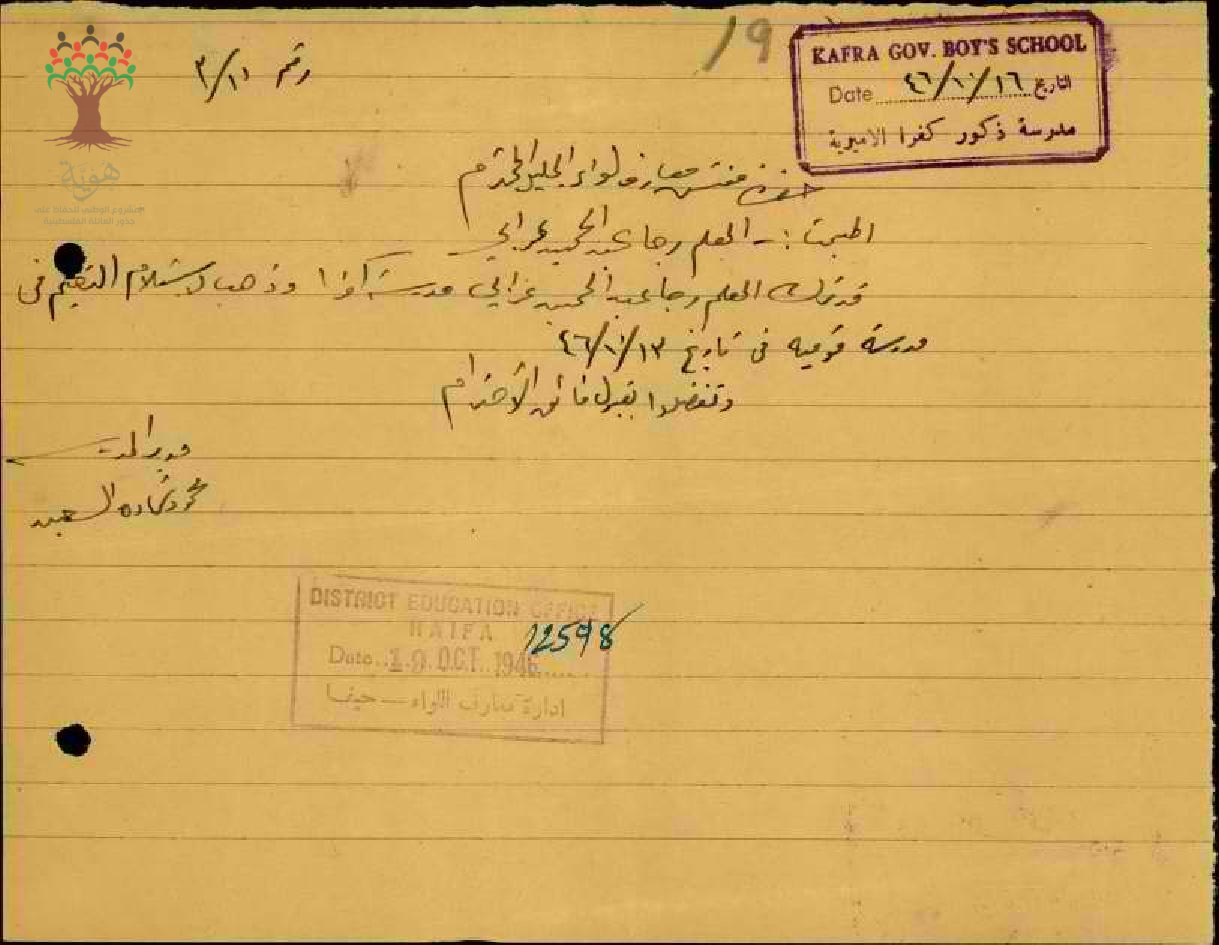 19
KAFRA GOV. BOY'S SCHOOL
Date ٤٦/١٠/١٦ التاريخ
مدرسة ذكور كفرا الاميرية
رقم ٣/١١
هوية
المشروع الوطني للحفاظ على
جذور العائلة الفلسطينية
حضرة مفتش معارف لواء الجليل المحترم
المعلم رجا عبد الحميد غزالي
قد ترك المعلم رجا عبد الحميد غزالي مدرسة كفرا وذهب لاستلام التعليم في
مدرسة قوميه في تاريخ ٤٦/١٠/١٣
وتفضلوا بقبول فائق الاحترام
مدير المدرسة
محمود حماده السعيد
DISTRICT EDUCATION OFFICE
HAIFA
12598
Date 19 OCT. 1946
ادارة معارف اللواء — حيفا